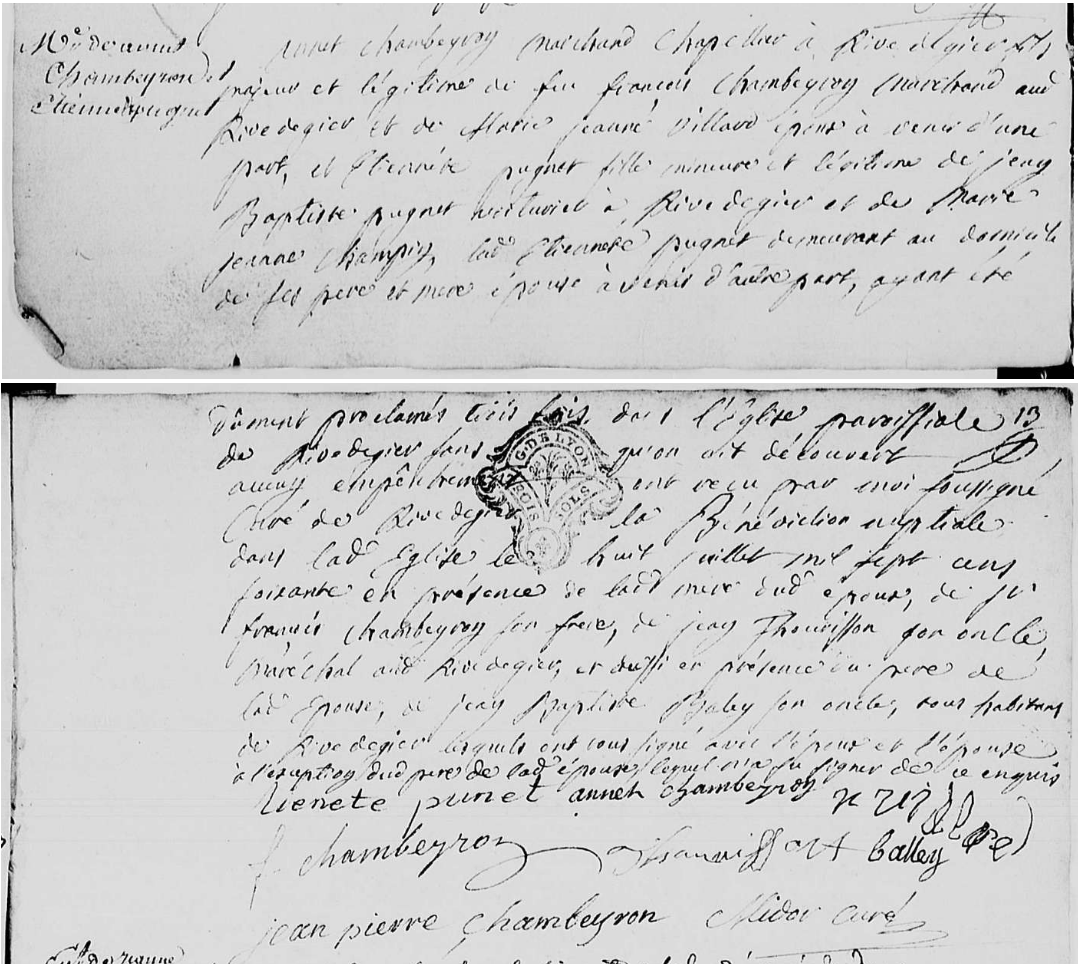 Annet Chambeyron marchand Chapellier à Rivedegier fils
majeur et légitime de feu françois Chambeyron marchand aud
Rivedegier et de Marie jeanne Villard époux à venir d'une
part, et Etiennete pugnet fille mineure et légitime de jean
Baptiste pugnet voiturier à Rivedegier et de Marie
jeanne Champin, lad Etiennete pugnet demeurant au domicile
de ses pere et mere épouse à venir d'autre part, ayant été
Chambeyron et
Etiennete pugnet
dûment proclamés trois fois dans l'Eglise paroissiale 13
de Rivedegier sans qu'on ait découvert
aucun empêchement ont reçu par moi soussigné
Curé de Rivedegier la Bénédiction nuptiale
dans lad Eglise le huit juillet mil sept cens
soixante en présence de lad mere dud époux, de sr
francois Chambeyron son frere, de jean Thouvisson son oncle,
maréchal aud Rivedegier, et aussi en présence du pere de
lad Epouse, de jean Baptiste Baley son oncle, tous habitans
de Rivedegier lesquels ont tous signé avec l'époux et l'épouse
à l'exception dud pere de lad épouse lequel n'a su signer de ce enquis
G. DE LYON
SOLS
tienete punet annet chambeyron
f chambeyron balley
jean pierre Chambeyron Midor curé